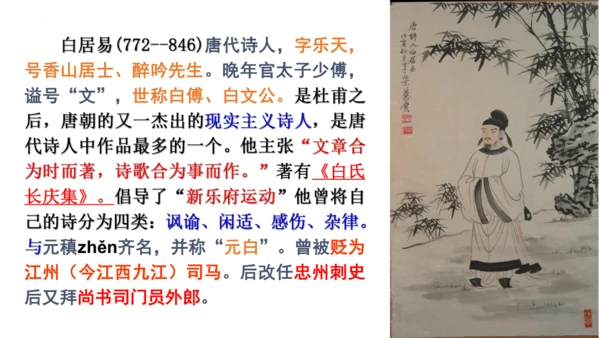 白居易(772--846)唐代诗人，字乐天，
号香山居士、醉吟先生。晚年官太子少傅，
谥号“文”，世称白傅、白文公。是杜甫之
后，唐朝的又一杰出的现实主义诗人，是唐
代诗人中作品最多的一个。他主张“文章合
为时而著，诗歌合为事而作。”著有《白氏
长庆集》。倡导了“新乐府运动”他曾将自
己的诗分为四类：讽谕、闲适、感伤、杂律。
与元稹zhěn齐名，并称“元白”。曾被贬为
江州（今江西九江）司马。后改任忠州刺史
后又拜尚书司门员外郎。
唐诗人白居易